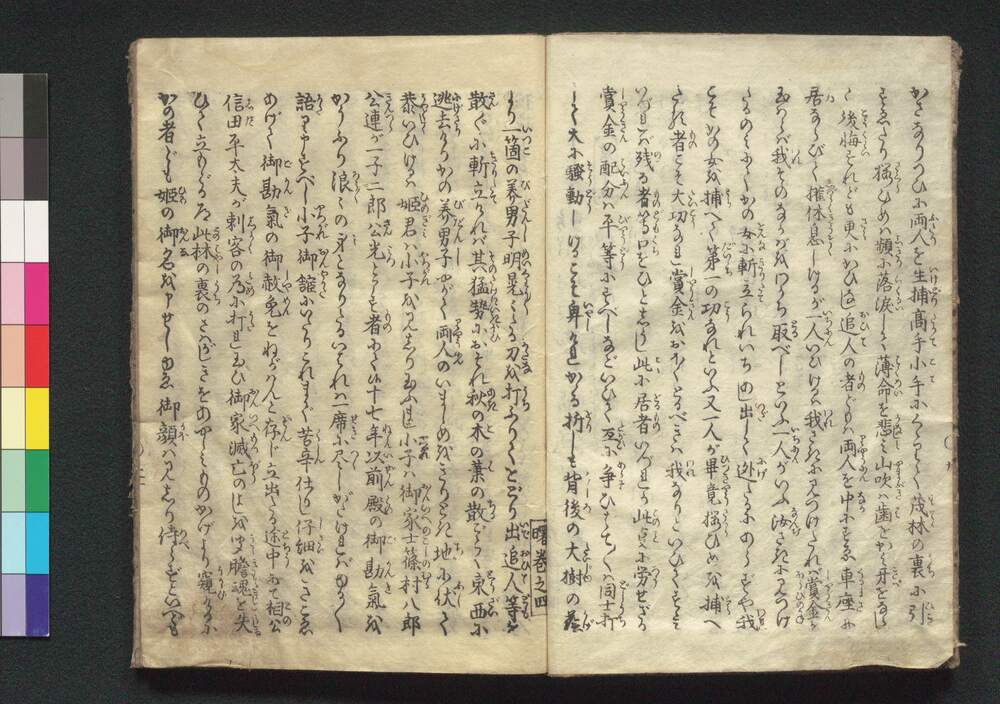 かさなりつひに両人を生捕高手小手にくゝりて茂林の裏に引
すゑたり桜ひめは頻に落涙して薄命を悲み山吹は歯をかみ牙をならし
て後悔すれども更にかひなし追人の者どもは両人を中にすゑ車座に
居ならびて権休息しけるが一人いひけるは我さきに見つけたれば賞金を
玉はらば我その
とるべしといふ一人がいふ汝さきに見つけ
たるのみにてかの女に斬立られいち出して逃たるにあらずや我
こそかの女を捕へて第一の功なれといふ又一人が畢竟桜ひめを捕へ
たる者こそ大功なれ賞金をおほくとるべきは我なりといひもすゑ
ざれば残る者等口をひとしうし此に居者いづれか此一条に労せざらん
賞金の配分は平等にすべしなどいひて互に争ひはては同士打
して大に騒動しけるこそ卑しけれかゝる折しも背後の大樹の蔭
より一箇の美男子明晃々たる刀を打ふりてをどり出追人等を
散々に斬立ければ其猛勢におそれ秋の木の葉の散ごとく東西に
逃去けりかの美男子やがて両人のいましめをきりとき地に伏して
恭いひけるは姫君は小子を見しり玉ふまじ小子は御家士篠村八郎
公連が一子二郎公光とまうす者にて候十七年以前殿の御勘気を
かうふり浪々の身となりたるいはれは一席に尽しがたければかさねて
語まうすべし小子御館にいりこれまで苦辛仕りし仔細をきこえ
あげて御勘気の御赦免をねがはんと存じ立出たる途中にて相公
信田平太夫が刺客の為に打れ玉ひ御家滅亡のよしをきゝ胆魂を失
ひて立もどる所此林の裏のさはがしきをあやしみものかげより窺ふるに
かの者ども姫の御名を申せしゆゑ御顔は見しり侍らずといへども
曙巻之四